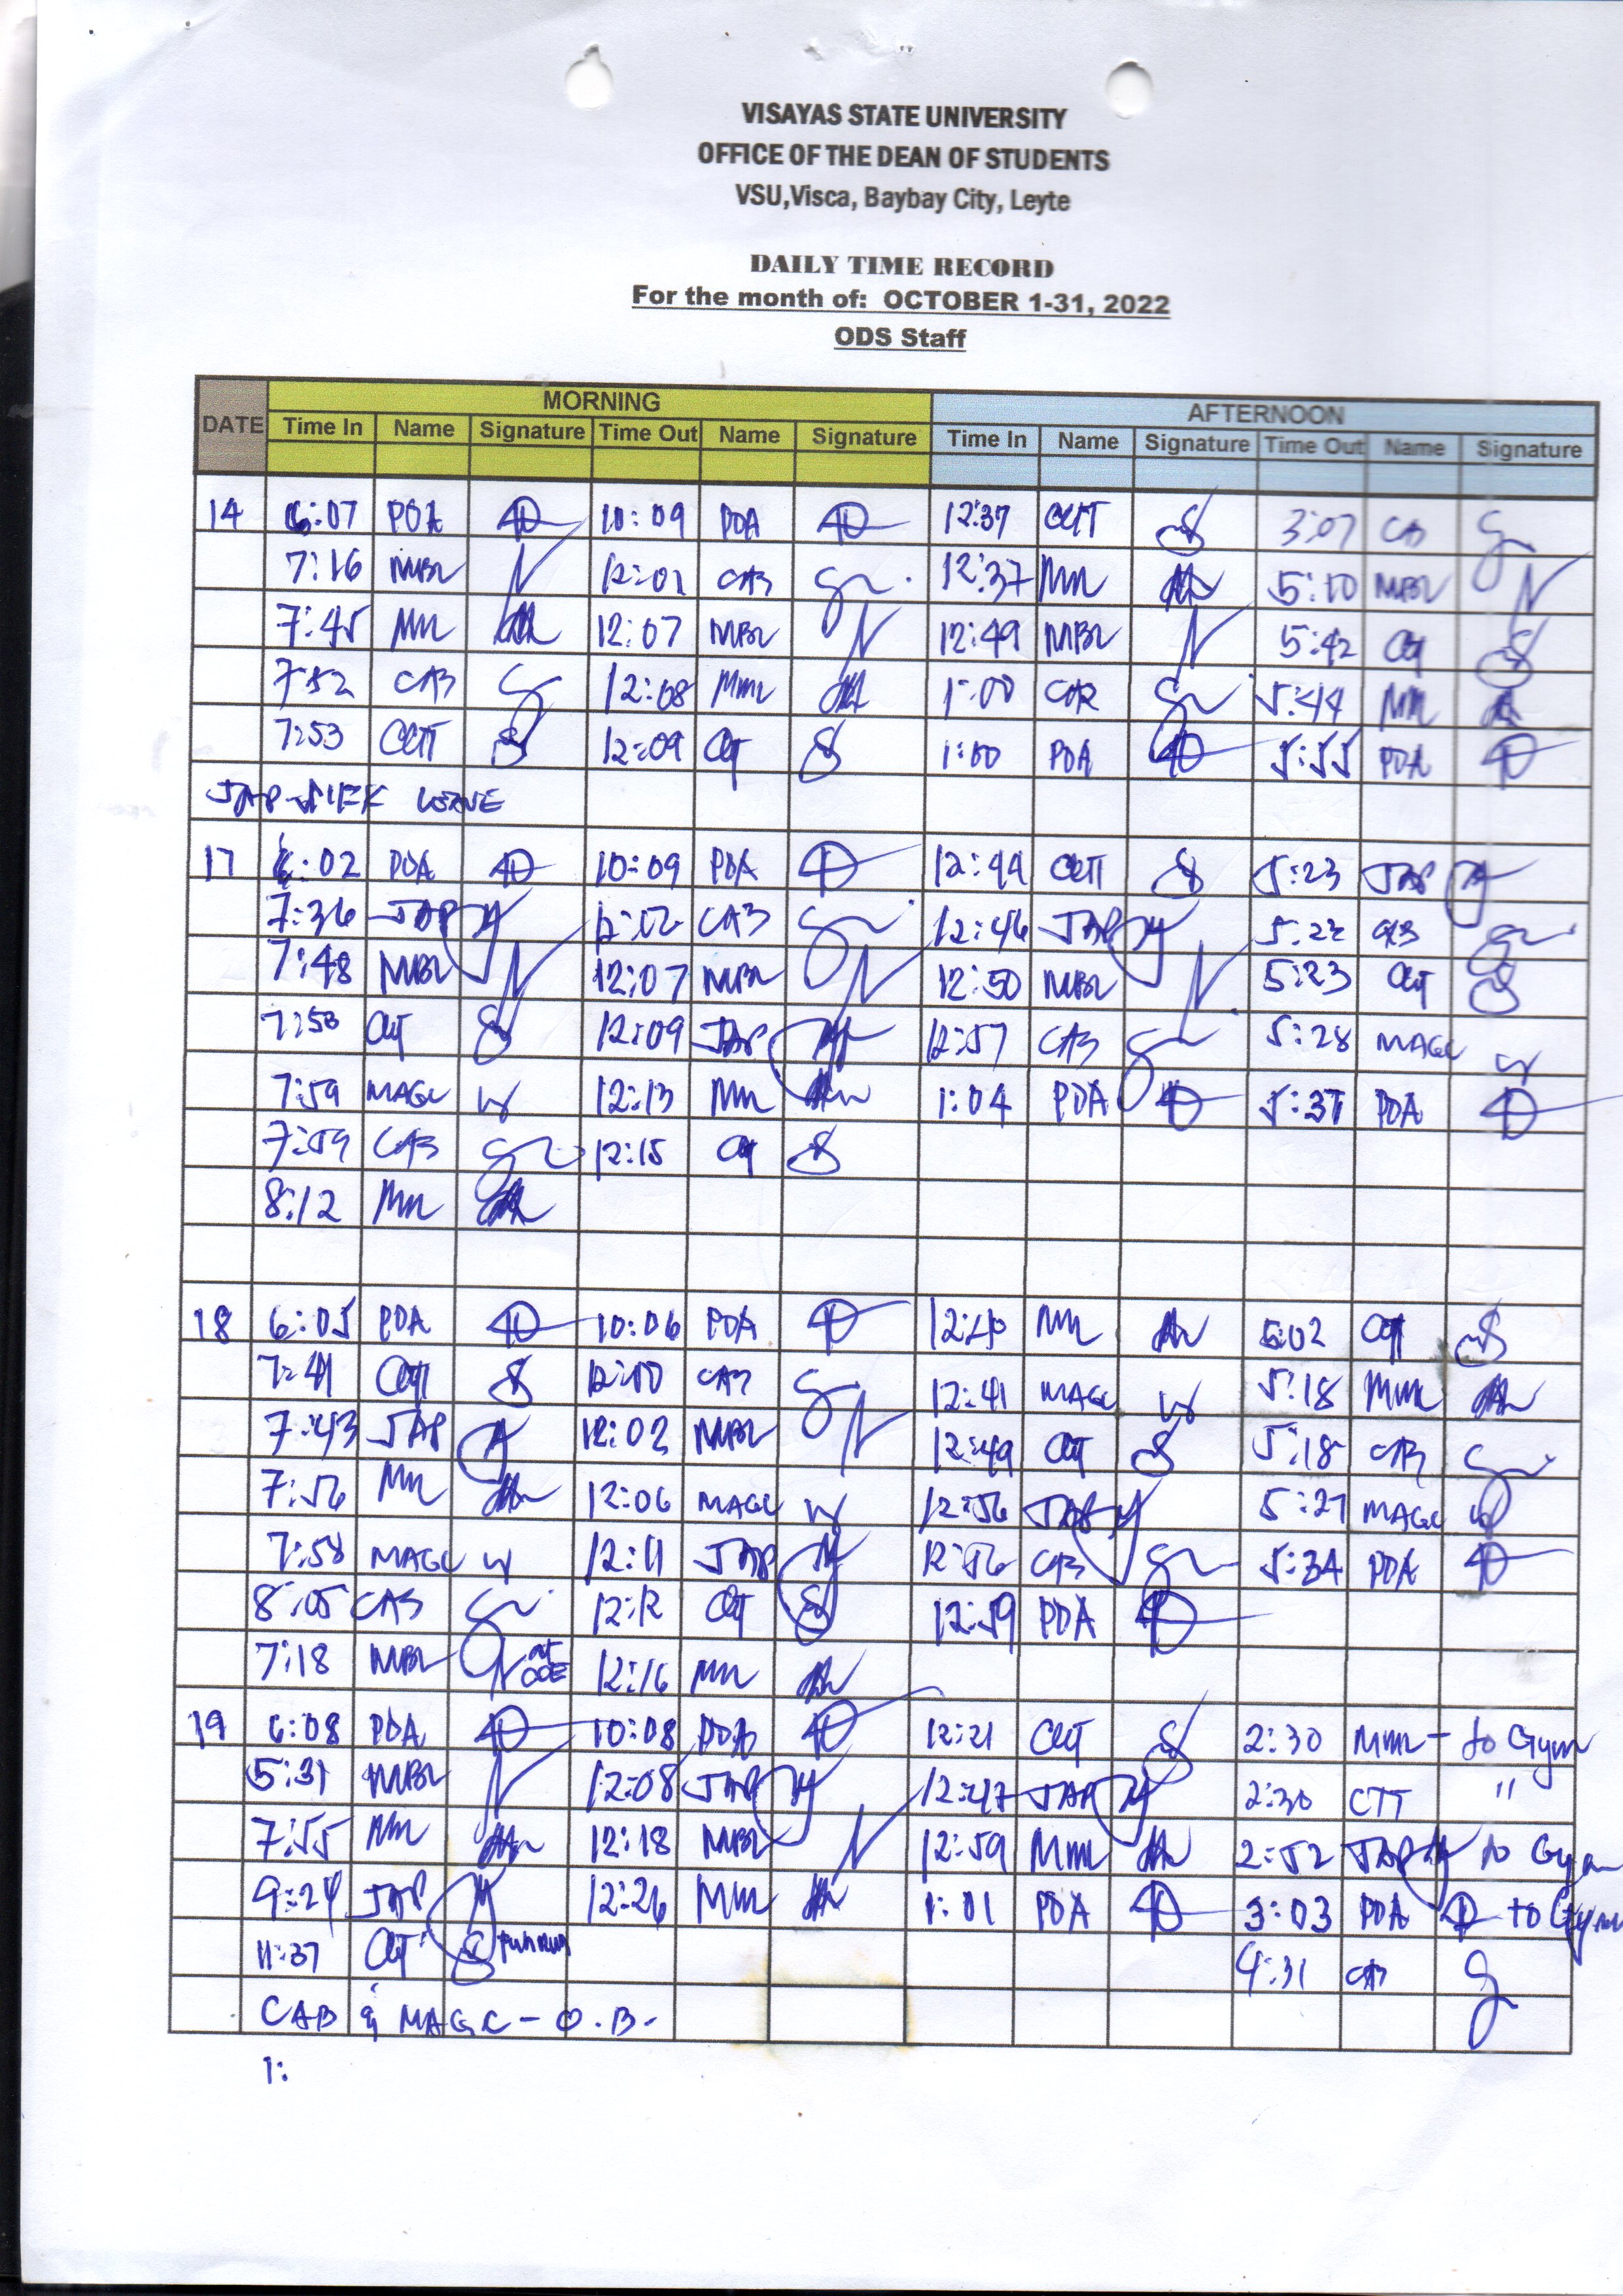 VISAYAS STATE UNIVERSITY
OFFICE OF THE DEAN OF STUDENTS
VSU,Visca, Baybay City, Leyte
DAILY TIME RECORD
For the month of: OCTOBER 1-31, 2022
ODS Staff
DATE MORNING AFTERNOON
Time In Name Signature Time Out Name Signature Time In Name Signature Time Out Name Signature
14 6:07 PDA 10:09 PDA 12:37 CTT 3:07 CAB
7:16 MBL 12:01 CAB 12:37 MM 5:10 MBL
7:45 MM 12:07 MBL 12:49 MBL 5:42
7:52 CAB 12:08 MML 1:00 5:44 MM
7:53 12:09 1:00 PDA 5:55 PDA
JAP-SICK LEAVE
17 6:02 PDA 10:09 PDA 12:44 5:23 JAP
7:36 JAP 12:02 CAB 12:46 JAP 5:22 CAB
7:48 MBL 12:07 MBL 12:50 MBL 5:23
12:09 JAP 12:57 CAB 5:28 MAGC
7:59 MAGC 12:13 MM 1:04 PDA PDA
7:59 CAB 12:15
8:12 MM
18 6:05 PDA 10:06 PDA MM 5:02
7:41 12:00 CAB 12:41 MAGC 5:18 MM
7:43 JAP 12:02 MBL 12:49 5:18 CAB
7:56 MM 12:06 MAGC 12:56 JAP 5:27 MAGC
7:58 MAGC 12:11 JAP 12:56 CAB 5:34 PDA
8:05 CAB 12:12 12:59 PDA
7:18 MBL 12:16 MM
19 6:08 PDA 10:08 PDA 12:21 2:30 MM - to Gym
5:31 MBL 12:08 JAP 12:47 JAP 2:30 CTT "
7:55 MM 12:18 MBL 12:59 MM 2:52 JAP to Gym
9:24 JAP 12:26 MM 1:01 PDA 3:03 PDA to Gym
11:37 4:31 CAB
CAB & MAGC - O.B.
1: